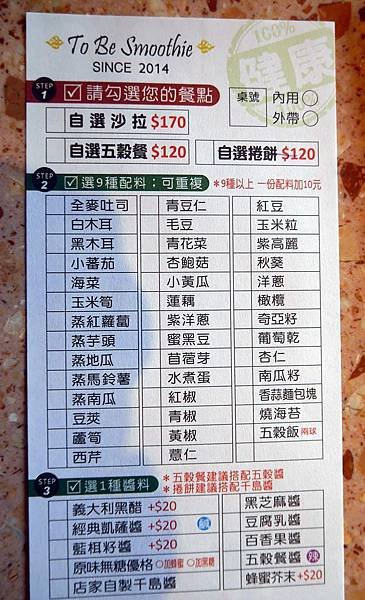 To Be Smoothie
SINCE 2014
100%
健康
STEP 1 ☑ 請勾選您的餐點
桌號 內用○
外帶○
自選沙拉 $170
自選五穀餐 $120 自選捲餅 $120
STEP 2 ☑ 選9種配料：可重複 *9種以上 一份配料加10元
全麥吐司 青豆仁 紅豆
白木耳 毛豆 玉米粒
黑木耳 青花菜 紫高麗
小蕃茄 杏鮑菇 秋葵
海菜 小黃瓜 洋蔥
玉米筍 蓮藕 橄欖
蒸紅蘿蔔 紫洋蔥 奇亞籽
蒸芋頭 蜜黑豆 葡萄乾
蒸地瓜 苜蓿芽 杏仁
蒸馬鈴薯 水煮蛋 南瓜籽
蒸南瓜 紅椒 香蒜麵包塊
豆莢 青椒 燒海苔
蘆筍 黃椒 五穀飯 兩球
西芹 薏仁
STEP 3 ☑ 選1種醬料 *五穀餐建議搭配五穀醬
*捲餅建議搭配千島醬
義大利黑醋 +$20 黑芝麻醬
經典凱薩醬 +$20 鹹 豆腐乳醬
藍柑籽醬 +$20 百香果醬
原味無糖優格 ○加蜂蜜 ○加黑糖 五穀餐醬 辣
店家自製千島醬 蜂蜜芥末 +$20